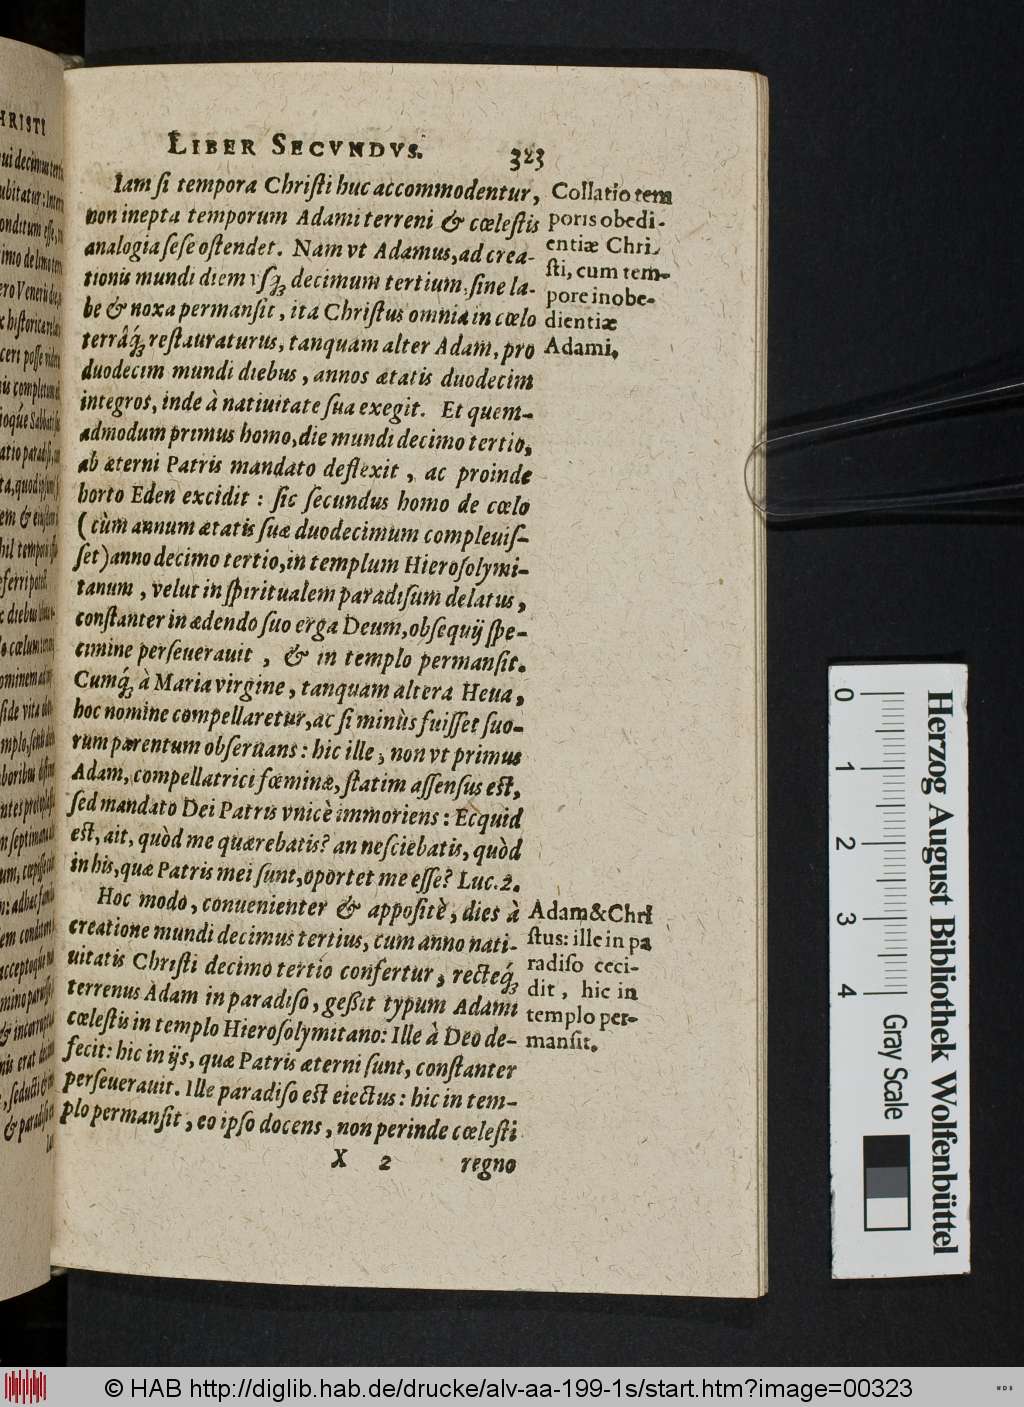 HRISTI
LIBER SECVNDVS. 323
Iam ſi tempora Chriſti huc accommodentur,
non inepta temporum Adami terreni & cœleſtis
analogia ſeſe oſtendet. Nam vt Adamus, ad crea-
tionis mundi diem vſq́; decimum tertium, ſine la-
be & noxa permanſit, ita Chriſtus omnia in cœlo
terrâq́; reſtauraturus, tanquam alter Adam, pro
duodecim mundi diebus, annos ætatis duodecim
integros, inde à natiuitate ſua exegit. Et quem-
admodum primus homo, die mundi decimo tertio,
ab æterni Patris mandato deflexit, ac proinde
horto Eden excidit: ſic ſecundus homo de cœlo
(cùm annum ætatis ſuæ duodecimum compleuiſ-
ſet) anno decimo tertio, in templum Hieroſolymi-
tanum, velut in ſpiritualem paradiſum delatus,
conſtanter in ædendo ſuo erga Deum, obſequij ſpe-
cimine perſeuerauit, & in templo permanſit.
Cumq́; à Maria virgine, tanquam altera Heua,
hoc nomine compellaretur, ac ſi minùs fuiſſet ſuo-
rum parentum obſeruans: hic ille, non vt primus
Adam, compellatrici fœminæ, ſtatim aſſenſus eſt,
ſed mandato Dei Patris vnicè immoriens: Ecquid
eſt, ait, quòd me quærebatis? an neſciebatis, quòd
in his, quæ Patris mei ſunt, oportet me eſſe? Luc. 2.
Hoc modo, conuenienter & appoſitè, dies à
creatione mundi decimus tertius, cum anno nati-
uitatis Chriſti decimo tertio confertur, recteq́;
terrenus Adam in paradiſo, geßit typum Adami
cœleſtis in templo Hieroſolymitano: Ille à Deo de-
fecit: hic in ijs, quæ Patris æterni ſunt, conſtanter
perſeuerauit. Ille paradiſo eſt eiectus: hic in tem-
plo permanſit, eo ipſo docens, non perinde cœleſti
X 2 regno
Collatio tem
poris obedi-
entiæ Chri-
ſti, cum tem-
pore inobe-
dientiæ
Adami.
Adam & Chri
ſtus: ille in pa
radiſo ceci-
dit, hic in
templo per-
manſit.
0 1 2 3 4
Gray Scale
Herzog August Bibliothek Wolfenbüttel
© HAB http://diglib.hab.de/drucke/alv-aa-199-1s/start.htm?image=00323